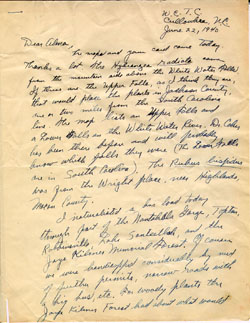 W.C.T.C.
Cullowhee, N.C.
June 22, 1940
Dear Alma:
The maps and your card came today.
Thanks a lot. The Hydrangea radiata came
from the mountain side above the White Water Falls
if these are the Upper Falls, as I think they are,
that would place the plants in Jackson County,
one or two miles from the South Carolina
line. The map lists an Upper Falls and
a Lower Falls on the White Water River. Dr. Coker
has been there before and will probably
know which falls they were (The Lower Falls
are in South Carolina). The Rubus
was from the Wright place near Highlands
Macon County.
I naturalist a bus load today
through part of the Nantahala Gorge, Topton
Robbinsville, Lake Santeetlah, and the
Joyce Kilmer Memorial Forest. Of course
we were handicapped considerably by need
of further permits, narrow roads with
a big bus, etc. For woody plants the
Joyce Kilmer Forest had about what would